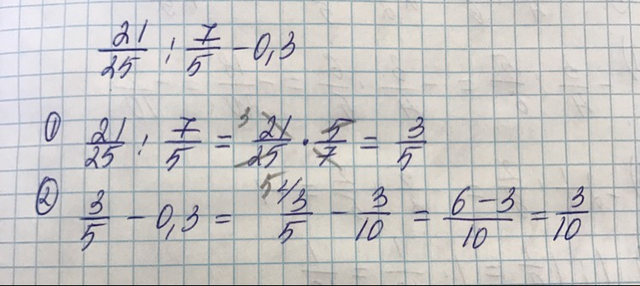 21/25 : 7/5 - 0,3
① 21/25 : 7/5 = 21/25 · 5/7 = 3/5
② 3/5 - 0,3 = 3/5 - 3/10 = 6-3/10 = 3/10